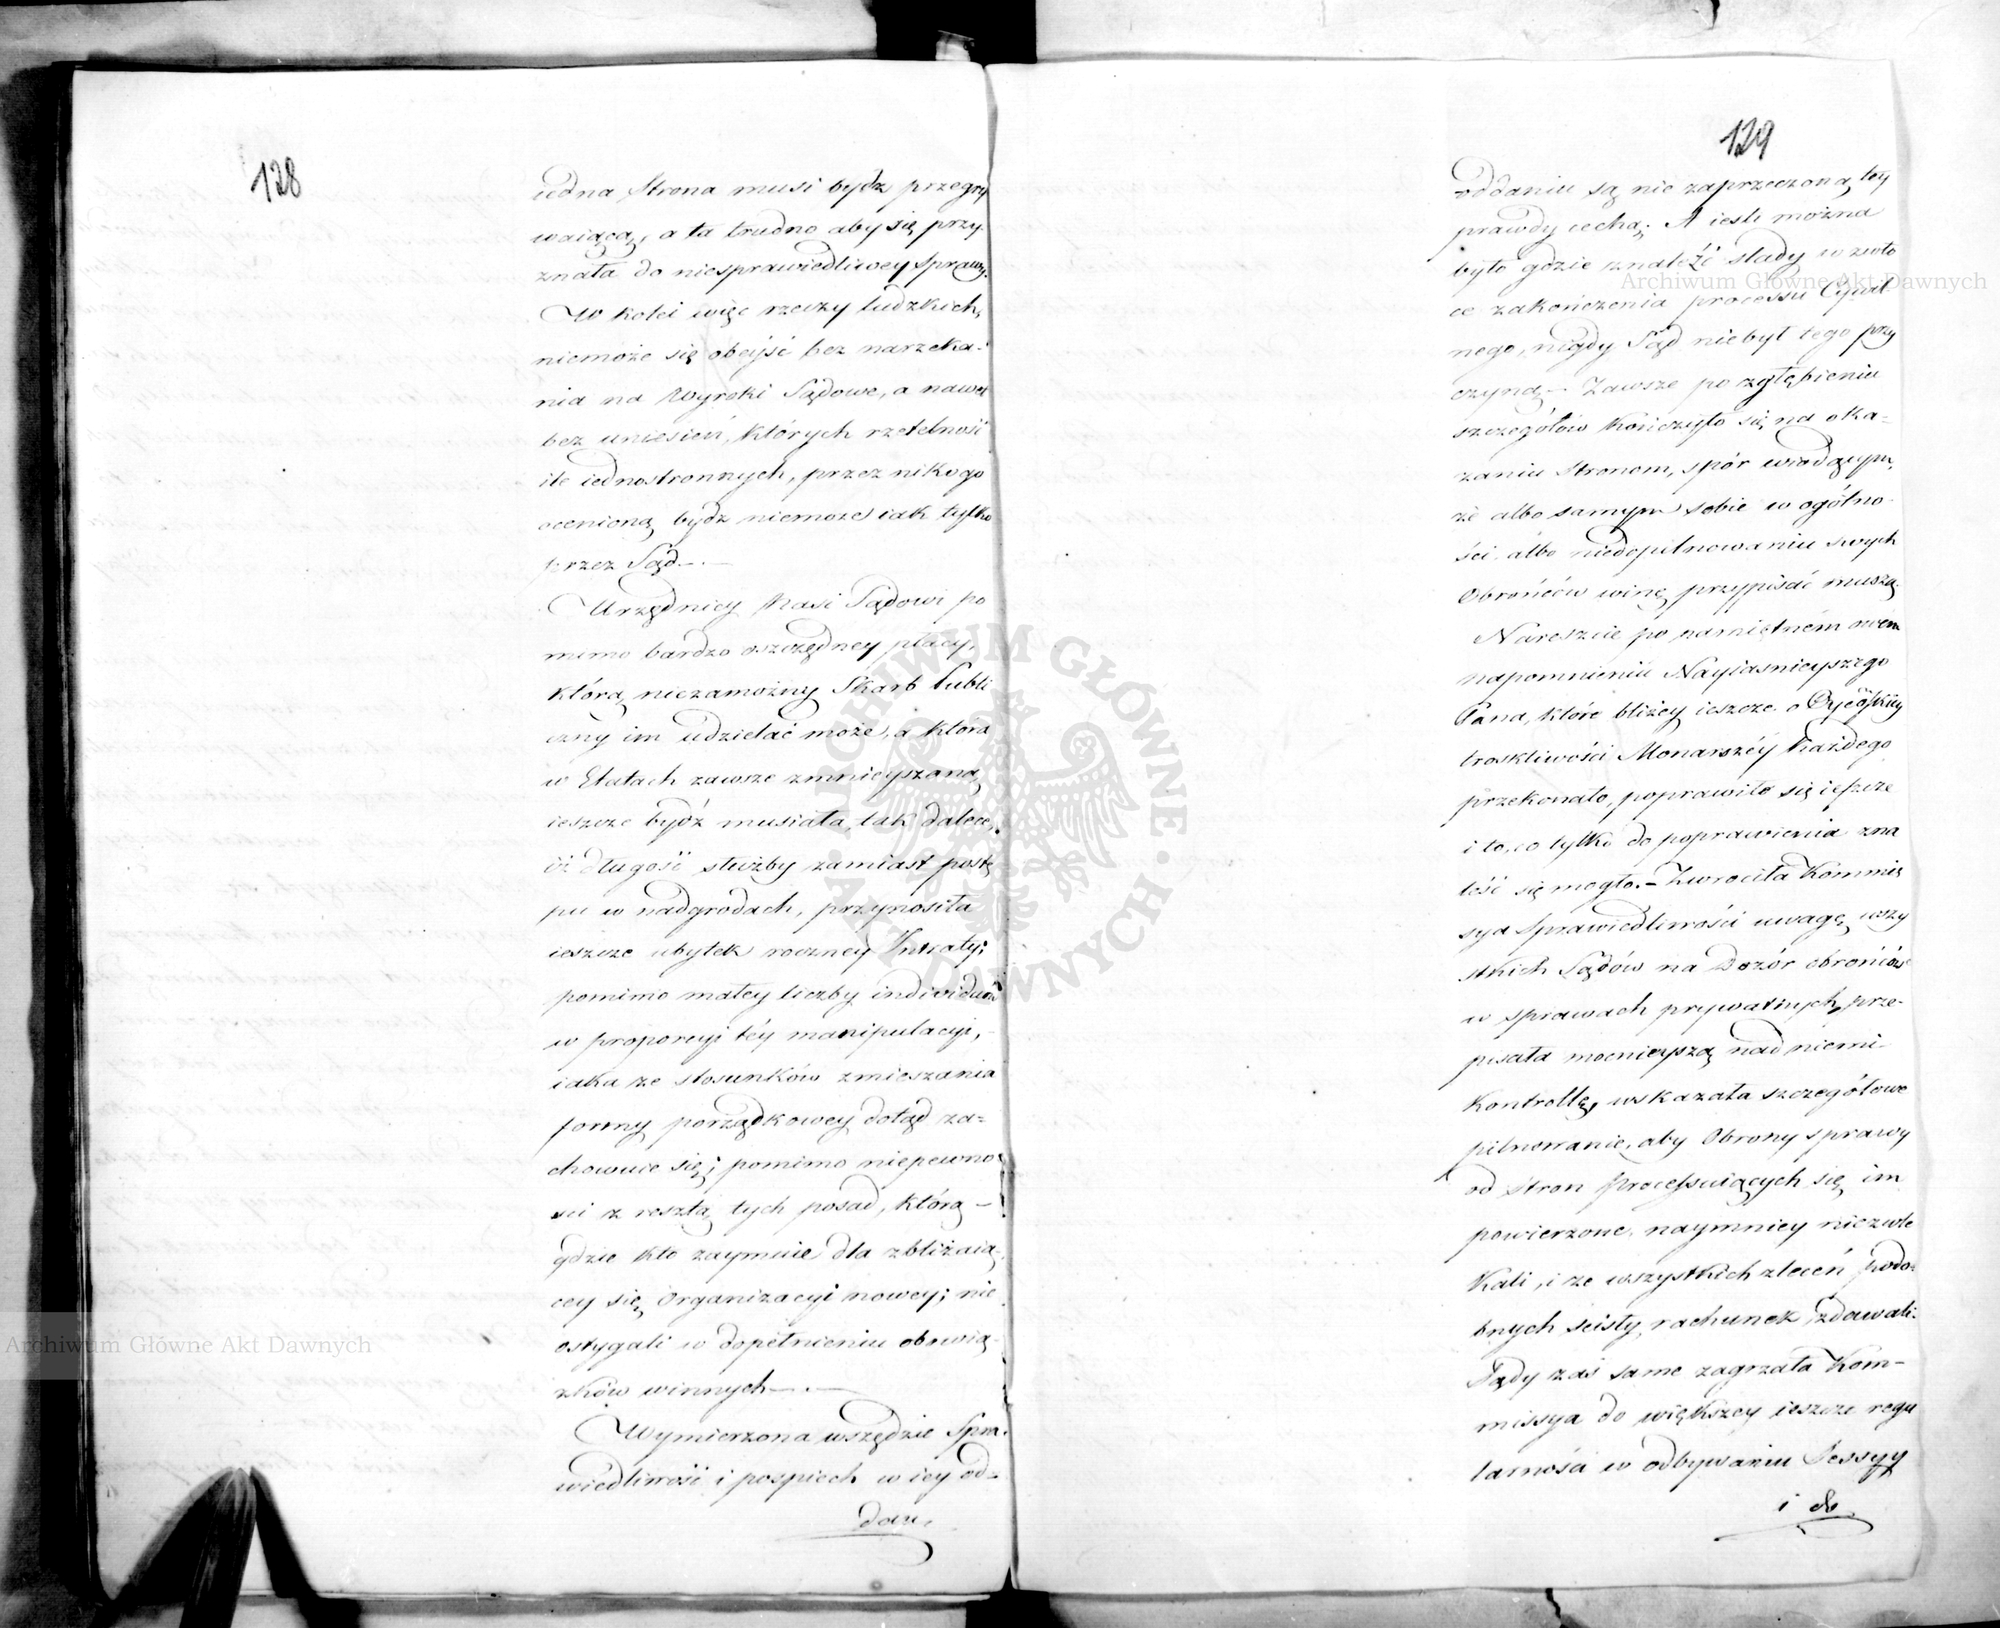 128
iedna Strona musi bydź przegry
waiącą, a ta trudno aby się przy
znała do niesprawiedliwey sprawy.
W kolei więc rzeczy ludzkich,
niemoże się obeyść bez narzeka-
nia na Wyroki Sądowe, a nawet
bez uniesień, których rzetelność
ile iednostronnych, przez nikogo
ocenioną bydź niemoże iak tylko
przez Sąd —.—
Urzędnicy Nasi Sądowi po
mimo bardzo oszczędney płacy,
którą niezamożny Skarb Publi
czny im udzielać może, a która
w Etatach zawsze zmnieyszaną
ieszcze bydź musiała, tak dalece,
iż długość służby zamiast postę
pu w nadgrodach, przynosiła
ieszcze ubytek roczney Intraty;
pomimo małey liczby individuów
w proporcyi téy manipulacyi,
iaka ze stosunków zmieszania
formy porządkowey dotąd za-
chowuie się; pomimo niepewno
sci z resztą tych posad, którą —
gdzie kto zaymuie dla zbliżaią-
cey się Organizacyi nowey; nie
ostygali w dopełnieniu obowią-
zków winnych —.—
Wymierzona wszędzie Spra-
wiedliwość i pospiech w iey od-
dan.
129
oddaniu są nie zaprzeczoną tey
prawdy cechą. A iesli można
było gdzie znaleźć slady w zwło
ce zakończenia processu Cywil
nego, nigdy Sąd niebył tego przy
czyną — Zawsze po zgłębieniu
szczegółów kończyło się na oka-
zaniu Stronom, spór wiodącym,
że albo samym sobie w ogólno-
ści, albo niedopilnowaniu swych
Obrońców winę przypisać muszą.
Nareszcie po pamiętném owém
napomnieniu Nayiasnieyszego
Pana, które bliżey ieszcze o Oycowskiey
troskliwości Monarszéy każdego
przekonało, poprawiło się ieszcze
i to, co tylko do poprawienia zna
leść się mogło. — Zwróciła Kommis
sya Sprawiedliwości uwagę wszy
stkich Sądów na Dozór obrońców
w sprawach prywatnych, prze-
pisała mocnieyszą nad niemi
Kontrollę, wskazała szczegółowe
pilnowanie, aby Obrony sprawy
od Stron Processuiących się im
powierzone, naymniey niezwle
kali, i ze wszystkich zleceń podo-
bnych scisły rachunek zdawali.
Sądy zaś same zagrzała Kom-
missya do większey ieszcze regu
larności w odbywaniu Sessyy
i do
Archiwum Główne Akt Dawnych
Archiwum Główne Akt Dawnych
ARCHIWUM GŁÓWNE · AKT DAWNYCH ·